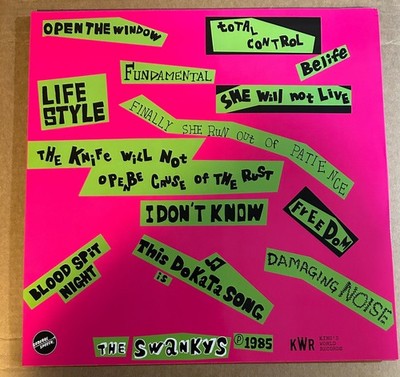 OPEN THE WINDOW
TOTAL
CONTROL
Belife
FUNDAMENTAL
LIFE
STYLE
SHE Will not LiVE
FINALLY SHE RUN OUT OF PATIENCE
THE KNiFe WiLL NoT
OPE,BE CAUSE OF THE RUST
I DON'T KNOW
FrEEDOM
BLOOD SPiT
NiGHT
This DoKaTa SONG
is
DAMAGING NOISE
THE SWANKYS
℗1985
KWR
KING'S
WORLD
RECORDS